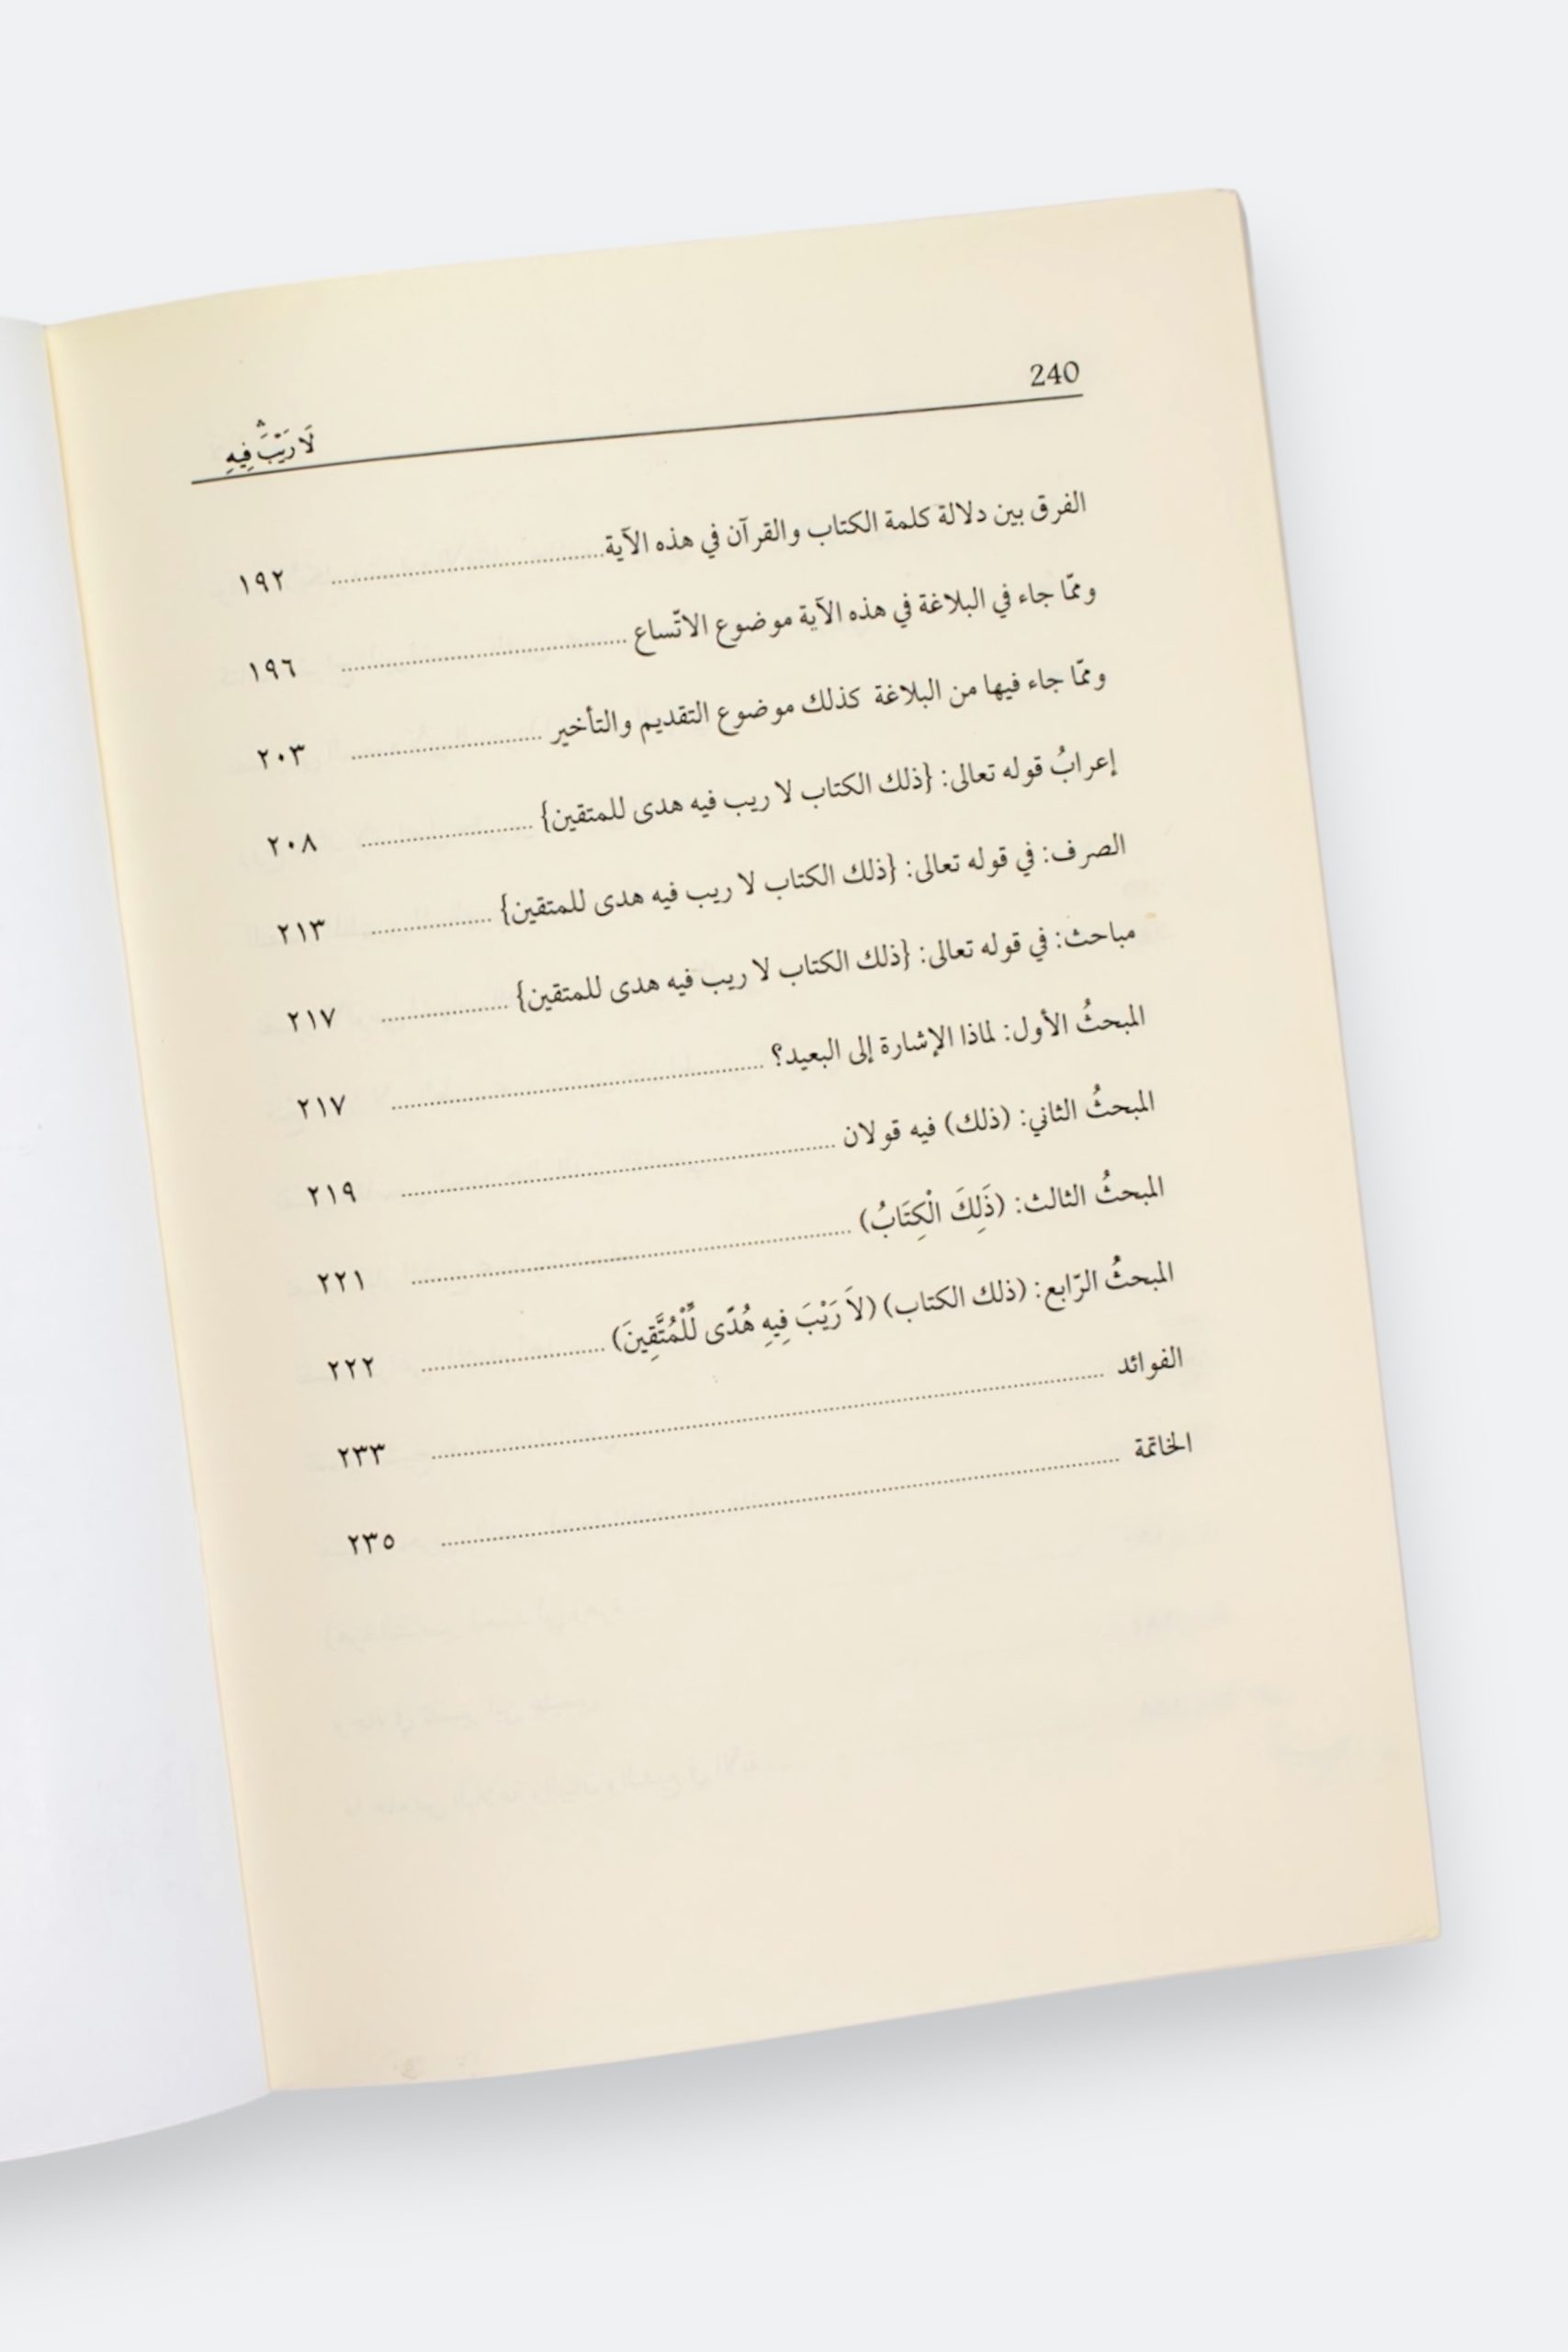 240
لَا رَيْبَ ۛ فِيهِ
الفرق بين دلالة كلمة الكتاب والقرآن في هذه الآية ........ ١٩٢
وممّا جاء في البلاغة في هذه الآية موضوع الاتّساع ........ ١٩٦
وممّا جاء فيها من البلاغة كذلك موضوع التقديم والتأخير ........ ٢٠٣
إعرابُ قوله تعالى: {ذلك الكتاب لا ريب فيه هدى للمتقين} ........ ٢٠٨
الصرف: في قوله تعالى: {ذلك الكتاب لا ريب فيه هدى للمتقين} ........ ٢١٣
مباحث: في قوله تعالى: {ذلك الكتاب لا ريب فيه هدى للمتقين} ........ ٢١٧
المبحثُ الأول: لماذا الإشارة إلى البعيد؟ ........ ٢١٧
المبحثُ الثاني: (ذلك) فيه قولان ........ ٢١٩
المبحثُ الثالث: (ذَلِكَ الْكِتَابُ) ........ ٢٢١
المبحثُ الرّابع: (ذلك الكتاب) (لاَ رَيْبَ فِيهِ هُدًى لِّلْمُتَّقِينَ) ........ ٢٢٢
الفوائد ........ ٢٣٣
الخاتمة ........ ٢٣٥